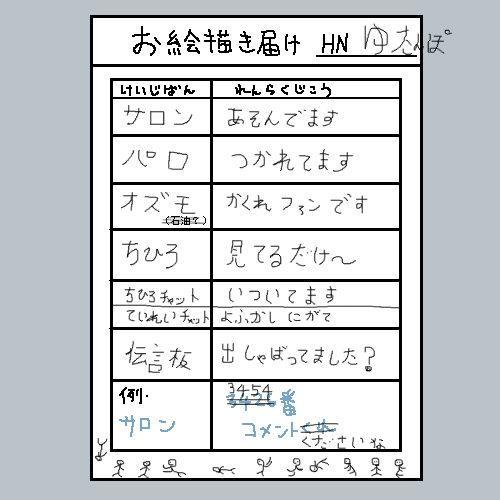 お絵描き届け HN ゆさんぽ
けいじばん れんらくじこう
サロン あそんでます
パロ つかれてます
オズモ かくれファンです
(石油て)
ちひろ 見てるだけ〜
ちひろチャット いついてます
ていれいチャット よふかしにがて
伝言板 出しゃばってました?
例. 3454
3426番
サロン コメント
くださいな